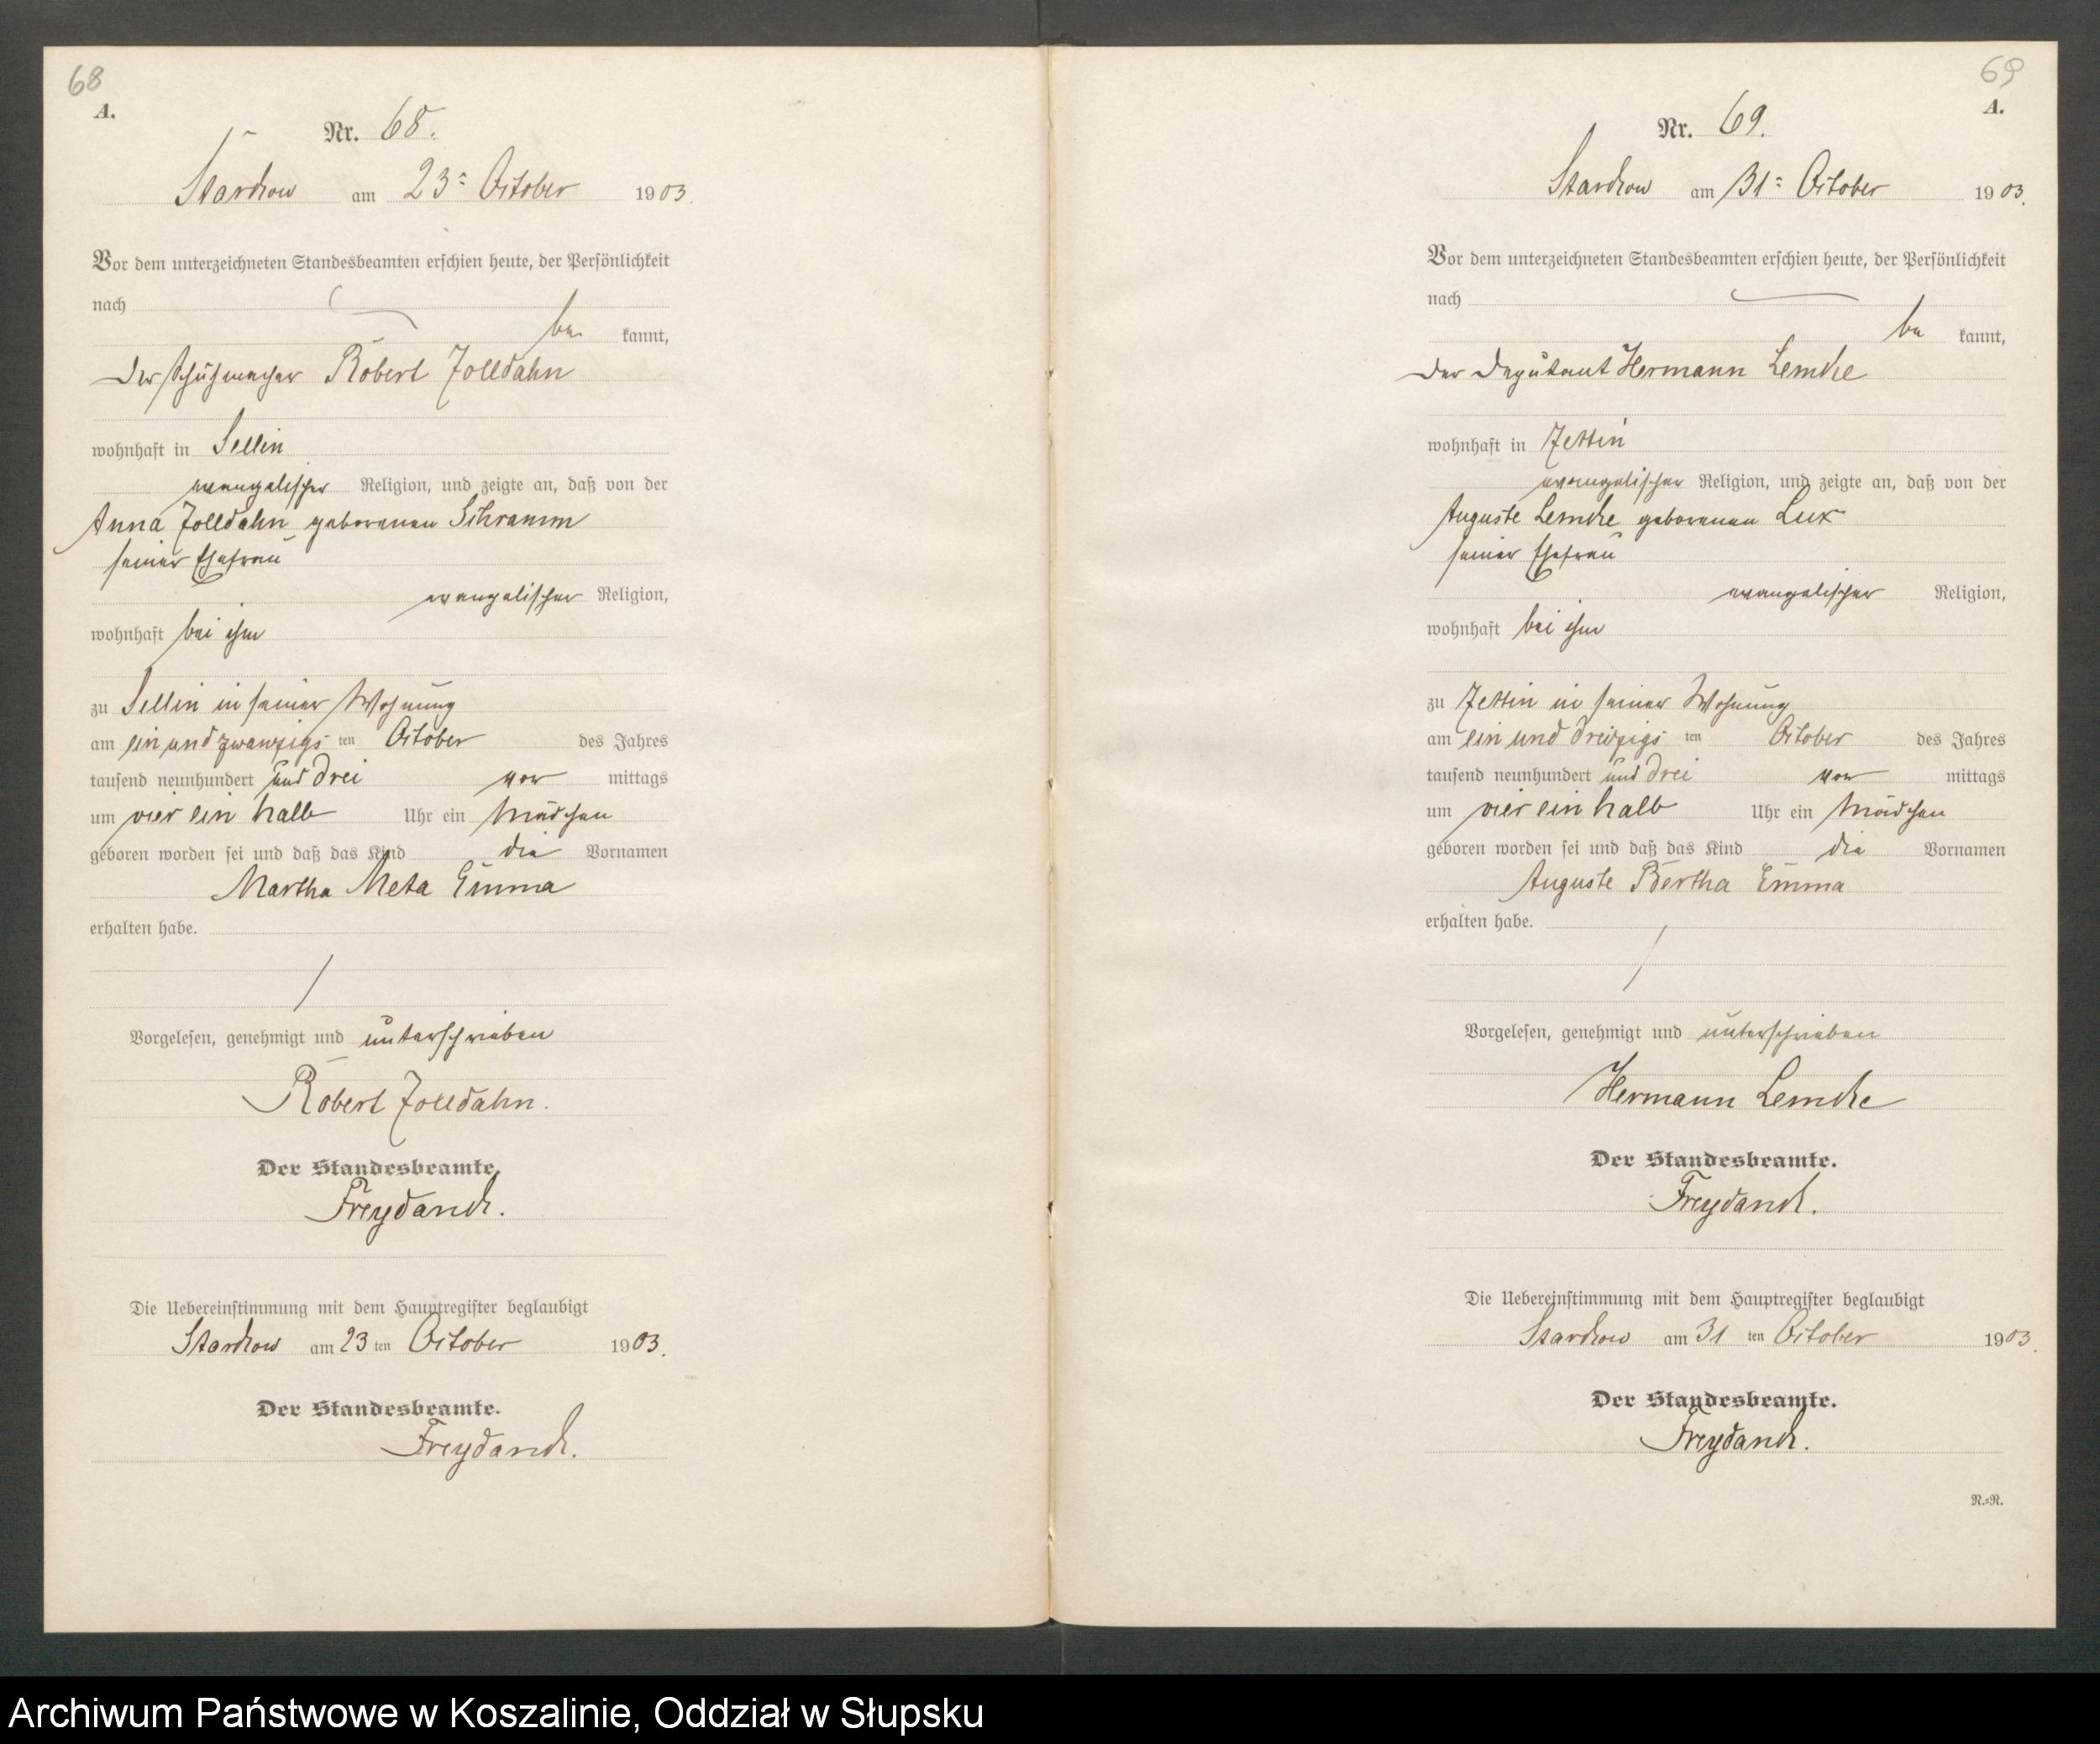 68
A.
Nr. 68.
Starckow am 23ten October 1903.
Vor dem unterzeichneten Standesbeamten erschien heute, der Persönlichkeit
nach
be kannt,
der Schuhmacher Robert Zolldahn
wohnhaft in Sellin
evangelischer Religion, und zeigte an, daß von der
Anna Zolldahn geborenen Schramm
seiner Ehefrau
evangelischer Religion,
wohnhaft bei ihm
zu Sellin in seiner Wohnung
am ein und zwanzigs ten October des Jahres
tausend neunhundert und drei vor mittags
um vier ein halb Uhr ein Mädchen
geboren worden sei und daß das Kind die Vornamen
Martha Meta Emma
erhalten habe.
Vorgelesen, genehmigt und unterschrieben
Robert Zolldahn.
Der Standesbeamte.
Freydanck.
Die Uebereinstimmung mit dem Hauptregister beglaubigt
Starckow am 23 ten October 1903.
Der Standesbeamte.
Freydanck.
69
A.
Nr. 69.
Starckow am 31ten October 1903.
Vor dem unterzeichneten Standesbeamten erschien heute, der Persönlichkeit
nach
be kannt,
der Deputant Hermann Lemcke
wohnhaft in Zettin
evangelischer Religion, und zeigte an, daß von der
Auguste Lemcke geborenen Lux
seiner Ehefrau
evangelischer Religion,
wohnhaft bei ihm
zu Zettin in seiner Wohnung
am ein und dreizigs ten October des Jahres
tausend neunhundert und drei vor mittags
um vier ein halb Uhr ein Mädchen
geboren worden sei und daß das Kind die Vornamen
Auguste Bertha Emma
erhalten habe.
Vorgelesen, genehmigt und unterschrieben
Hermann Lemcke
Der Standesbeamte.
Freydanck.
Die Uebereinstimmung mit dem Hauptregister beglaubigt
Starckow am 31 ten October 1903.
Der Standesbeamte.
Freydanck.
N.=N.
Archiwum Państwowe w Koszalinie, Oddział w Słupsku